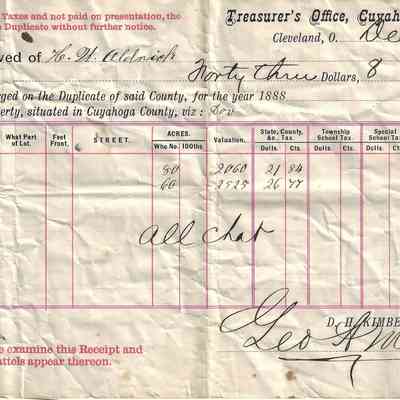 Taxes and not paid on presentation, the
Duplicate without further notice.
Treasurer's Office, Cuyaho
Cleveland, O. De
ved of H. W. Aldrich
Forty three Dollars, 8
rged on the Duplicate of said County, for the year 1888
perty, situated in Cuyahoga County, viz: Dov
What Part of Lot. Feet Front. STREET. ACRES. Who No. 100ths Valuation. State, County, &c., Tax. Dolls. Cts. Township School Tax. Dolls. Cts. Special School Tax Dolls.
50 2060 21 84
60 2525 26 77
All Chat
D. H. KIMBE
Geo
e examine this Receipt and
attels appear thereon.